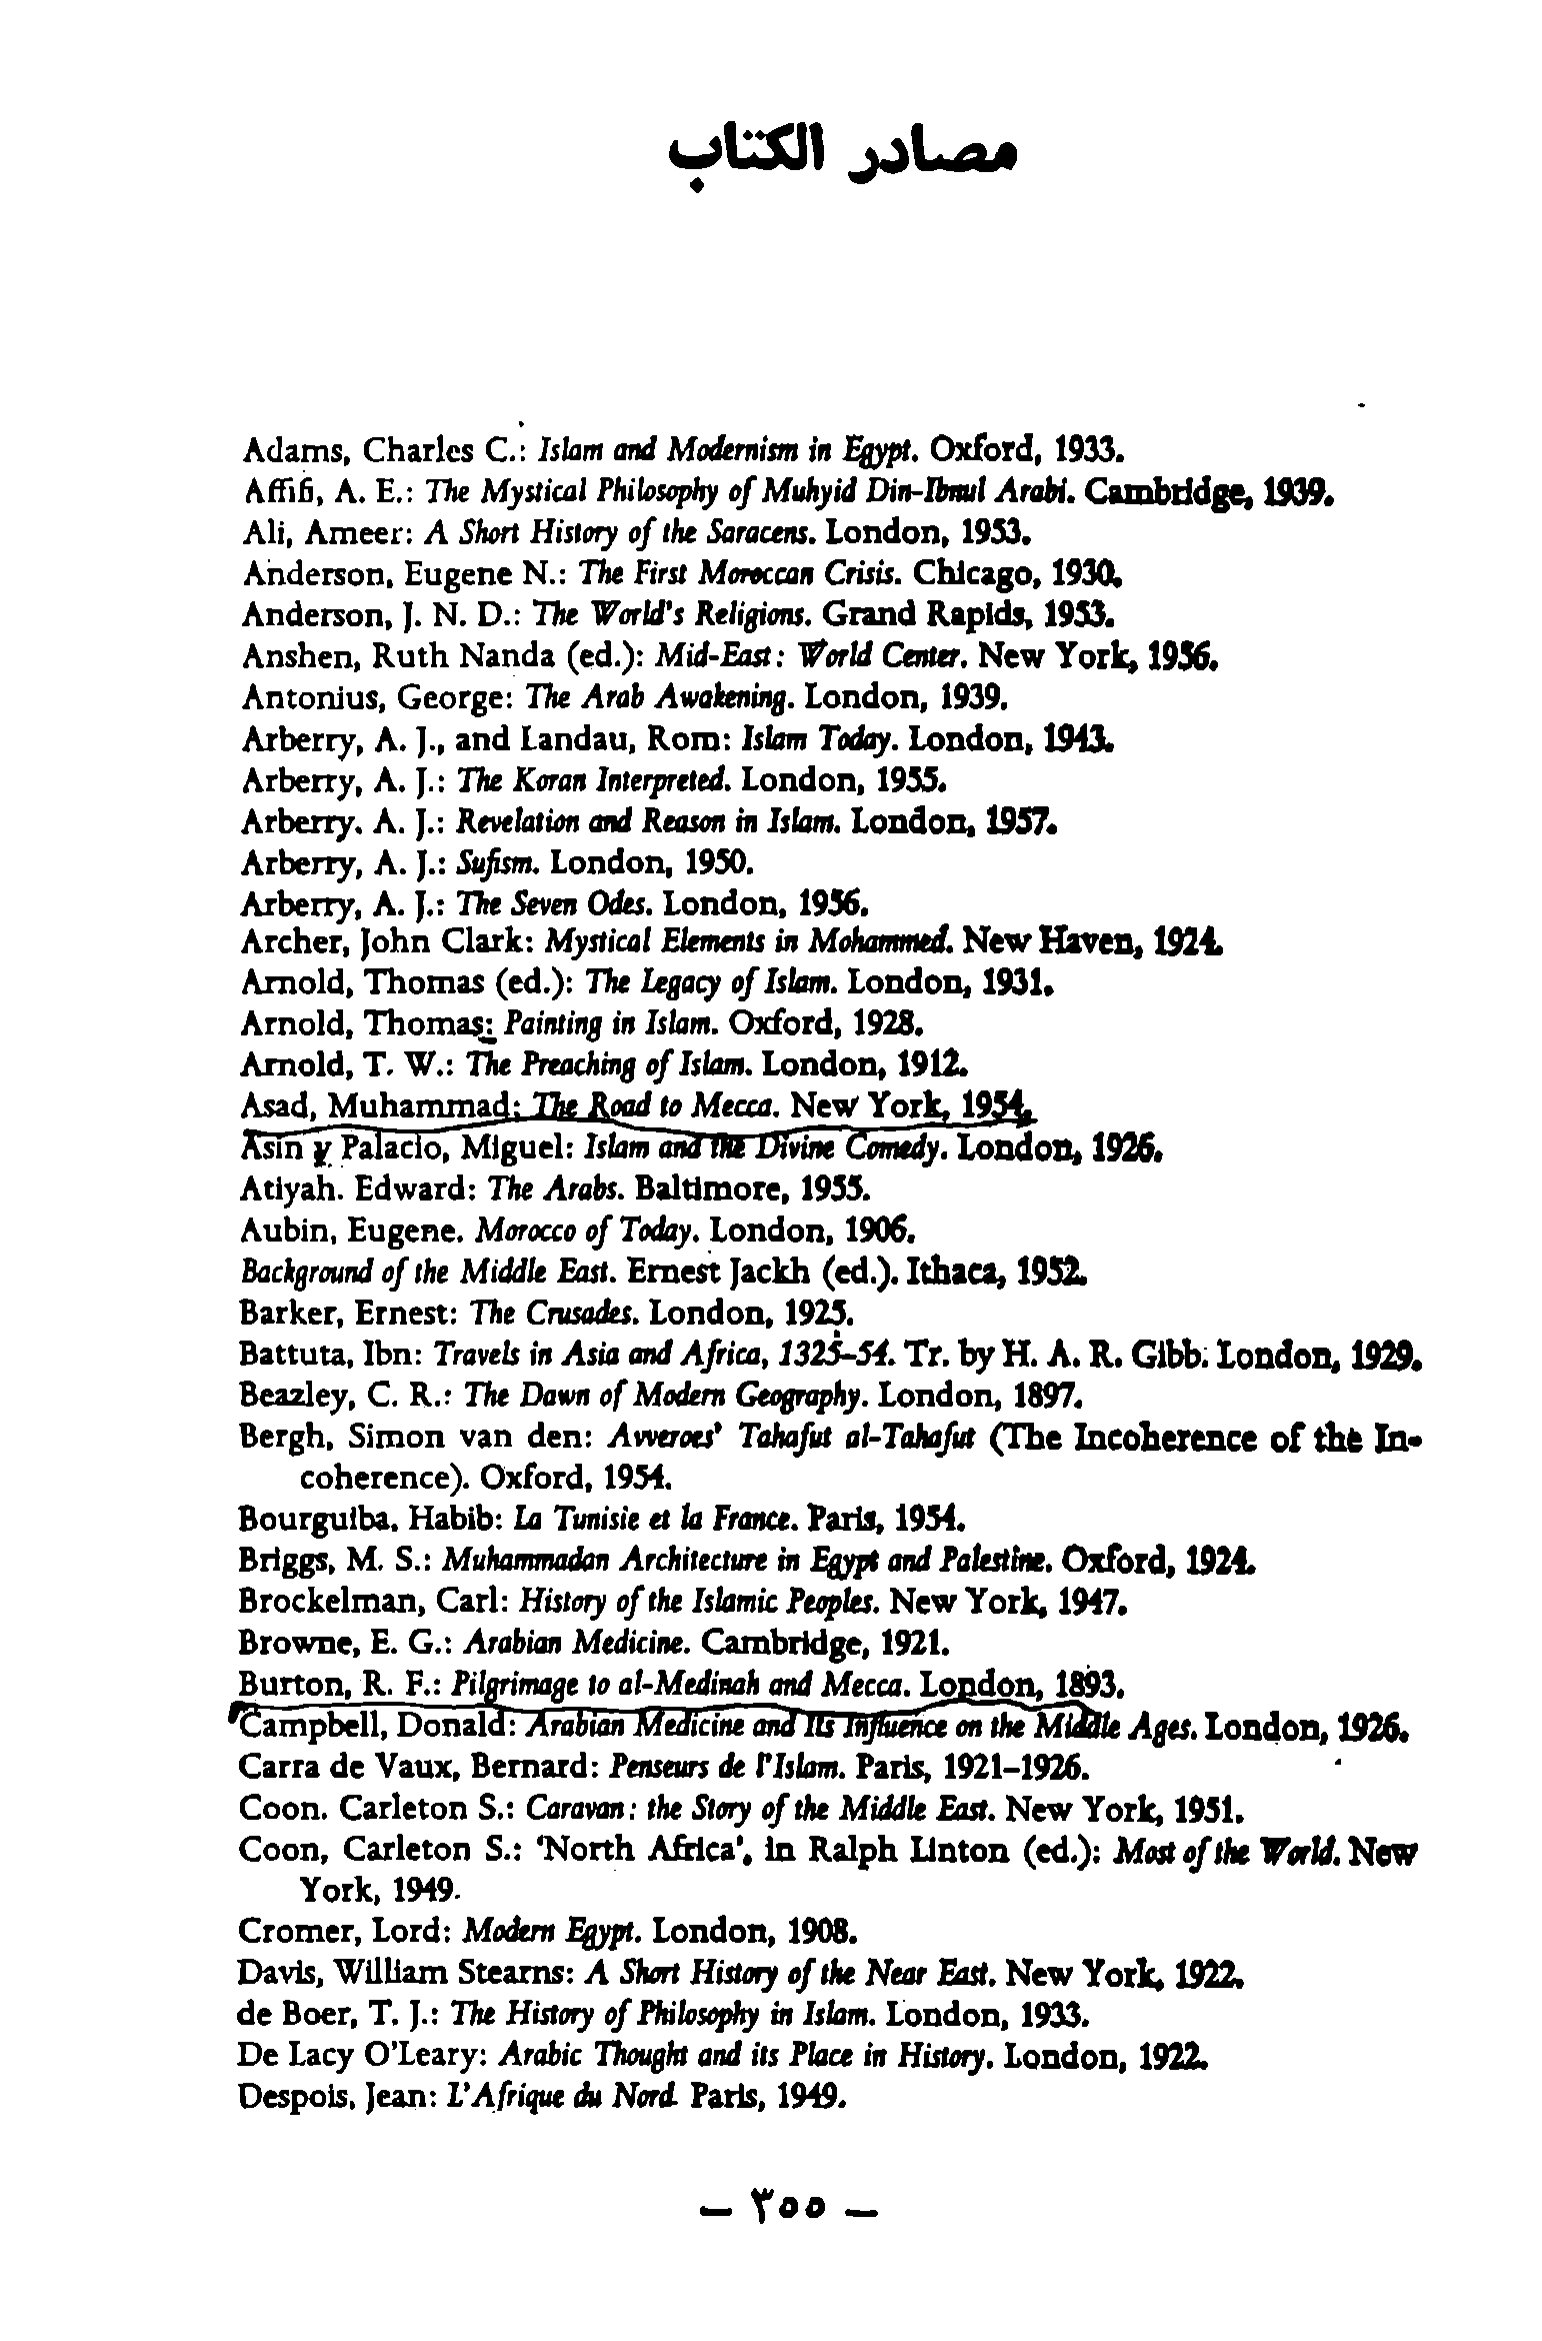 مصادر الكتاب
Adams, Charles C.: Islam and Modernism in Egypt. Oxford, 1933.
Affifi, A. E.: The Mystical Philosophy of Muhyid Din-Ibnul Arabi. Cambridge, 1939.
Ali, Ameer: A Short History of the Saracens. London, 1953.
Anderson, Eugene N.: The First Moroccan Crisis. Chicago, 1930.
Anderson, J. N. D.: The World's Religions. Grand Rapids, 1953.
Anshen, Ruth Nanda (ed.): Mid-East: World Center. New York, 1956.
Antonius, George: The Arab Awakening. London, 1939.
Arberry, A. J., and Landau, Rom: Islam Today. London, 1943.
Arberry, A. J.: The Koran Interpreted. London, 1955.
Arberry. A. J.: Revelation and Reason in Islam. London, 1957.
Arberry, A. J.: Sufism. London, 1950.
Arberry, A. J.: The Seven Odes. London, 1956.
Archer, John Clark: Mystical Elements in Mohammed. New Haven, 1924.
Arnold, Thomas (ed.): The Legacy of Islam. London, 1931.
Arnold, Thomas: Painting in Islam. Oxford, 1928.
Arnold, T. W.: The Preaching of Islam. London, 1912.
Asad, Muhammad: The Road to Mecca. New York, 1954.
Asin y Palacio, Miguel: Islam and the Divine Comedy. London, 1926.
Atiyah. Edward: The Arabs. Baltimore, 1955.
Aubin, Eugene. Morocco of Today. London, 1906.
Background of the Middle East. Ernest Jackh (ed.). Ithaca, 1952.
Barker, Ernest: The Crusades. London, 1925.
Battuta, Ibn: Travels in Asia and Africa, 1325-54. Tr. by H. A. R. Gibb. London, 1929.
Beazley, C. R.: The Dawn of Modern Geography. London, 1897.
Bergh, Simon van den: Avveroes' Tahafut al-Tahafut (The Incoherence of the In-
coherence). Oxford, 1954.
Bourguiba, Habib: La Tunisie et la France. Paris, 1954.
Briggs, M. S.: Muhammadan Architecture in Egypt and Palestine. Oxford, 1924.
Brockelman, Carl: History of the Islamic Peoples. New York, 1947.
Browne, E. G.: Arabian Medicine. Cambridge, 1921.
Burton, R. F.: Pilgrimage to al-Medinah and Mecca. London, 1893.
Campbell, Donald: Arabian Medicine and Its Influence on the Middle Ages. London, 1926.
Carra de Vaux, Bernard: Penseurs de l'Islam. Paris, 1921-1926.
Coon. Carleton S.: Caravan: the Story of the Middle East. New York, 1951.
Coon, Carleton S.: 'North Africa', in Ralph Linton (ed.): Most of the World. New
York, 1949.
Cromer, Lord: Modern Egypt. London, 1908.
Davis, William Stearns: A Short History of the Near East. New York, 1922.
de Boer, T. J.: The History of Philosophy in Islam. London, 1933.
De Lacy O'Leary: Arabic Thought and its Place in History. London, 1922.
Despois, Jean: L'Afrique du Nord. Paris, 1949.
— ٣٥٥ —